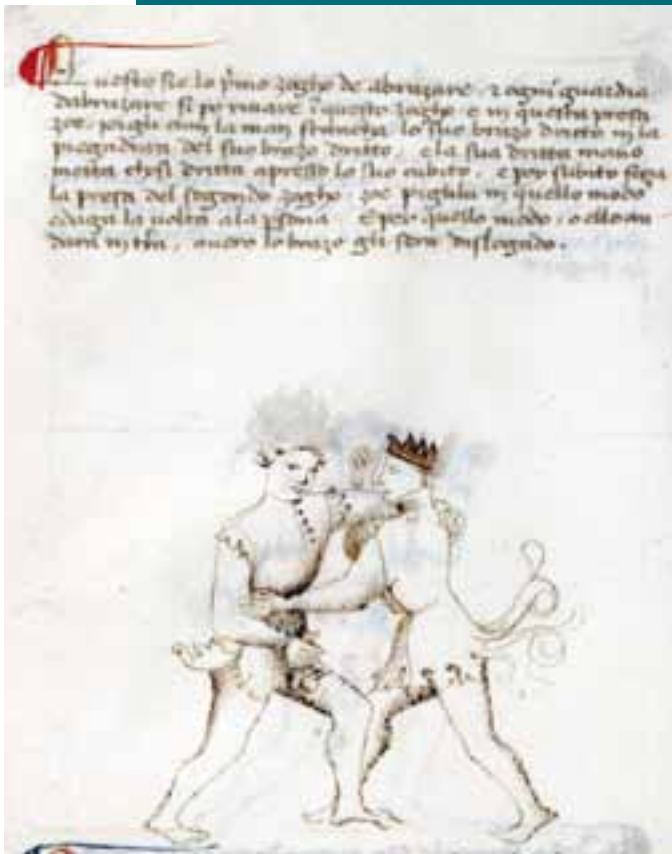 Questo sie lo p̃mo zogho de abrazare, z ogni guardia
dabrazare si po rivare ĩ questo zogho e in questa presa
zoe, pigli cum la man stancha lo suo brazo dritto in la
piegadura del suo brazo dritto, e la sua dritta mano
metta chosi dritta apresso lo suo cubito, e poy subito faza
la presa del segondo zogho zoe piglilu in quello modo
e daga la volta ala p̃sona E per quello modo, o ello an
dara in tr̃a, overo lo brazo gli sera dislogado.